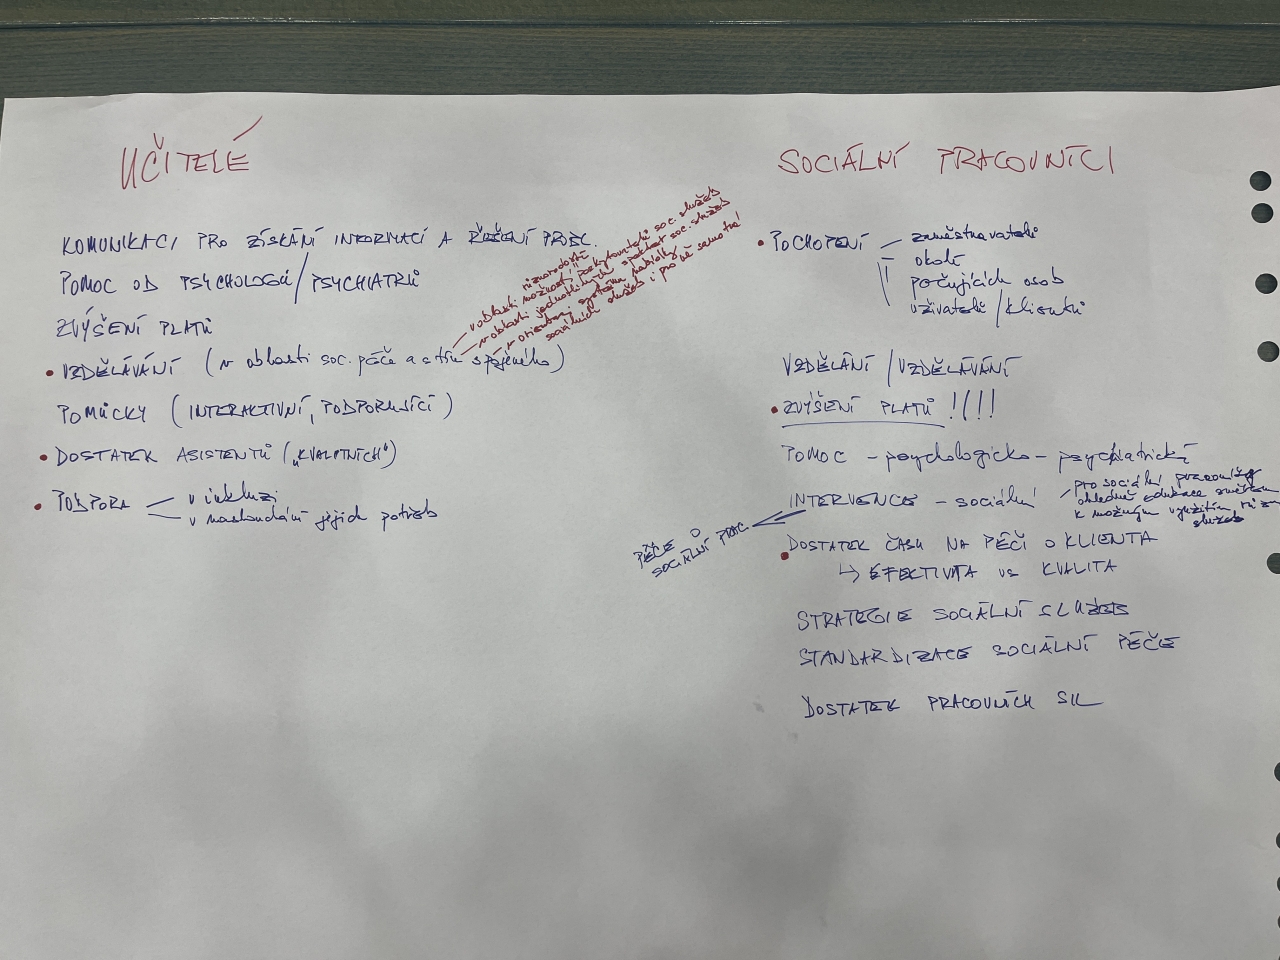 UČITELÉ
KOMUNIKACI PRO ZÍSKÁNÍ INFORMACÍ A ŘEŠENÍ PROBL.
POMOC OD PSYCHOLOGŮ / PSYCHIATRŮ
ZVÝŠENÍ PLATŮ
• VZDĚLÁVÁNÍ (v oblasti soc. péče a s tím spojeného)
– v oblasti možností poskytovatelů soc. služeb
různorodost
– v oblasti jednotlivých soc. služeb
– v systému nabídky
sociálních služeb i pro ně samotné
POMŮCKY (INTERAKTIVNÍ, PODPORUJÍCÍ)
• DOSTATEK ASISTENTŮ („KVALITNÍCH“)
• PODPORA – v inkluzi
– v naslouchání jejich potřeb
SOCIÁLNÍ PRACOVNÍCI
• POCHOPENÍ – zaměstnavatelů
– okolí
počujících osob
uživatelů / klientů
VZDĚLÁNÍ / VZDĚLÁVÁNÍ
• ZVÝŠENÍ PLATŮ !!!!
POMOC – psychologicko – psychiatrická
INTERVENCE – sociální
pro sociální pracovníky
ohledně edukace směrem
k možným využitím
služeb
PÉČE O
SOCIÁLNÍ PRAC.
• DOSTATEK ČASU NA PÉČI O KLIENTA
↳ EFEKTIVITA vs KVALITA
STRATEGIE SOCIÁLNÍ SLUŽEB
STANDARDIZACE SOCIÁLNÍ PÉČE
DOSTATEK PRACOVNÍCH SIL